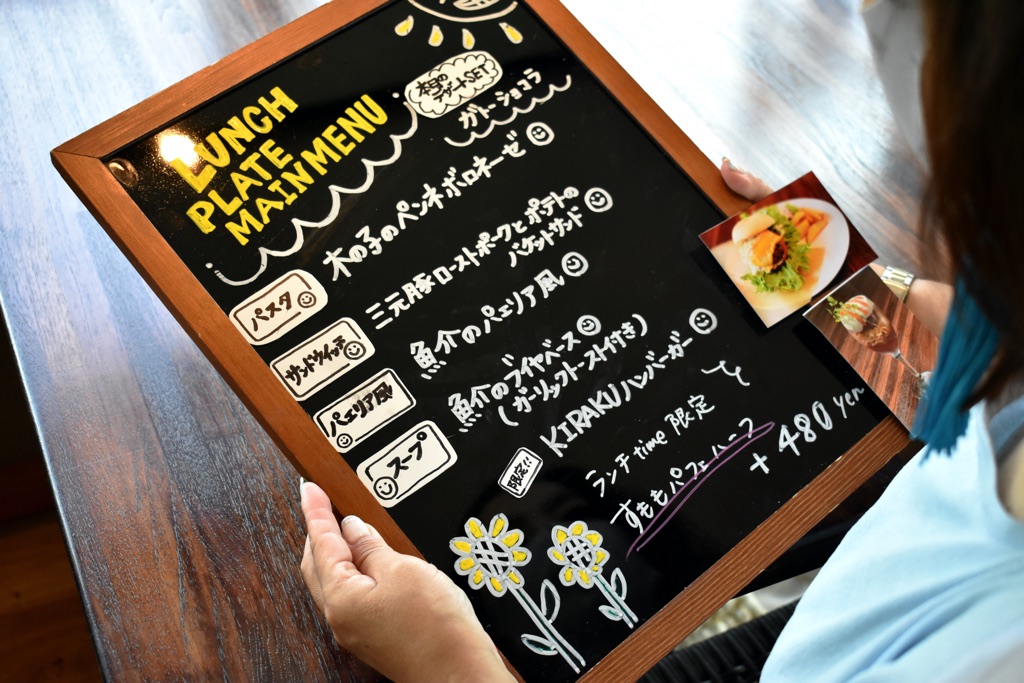 LUNCH
PLATE
MAIN MENU
本日の
デザートSET
ガトーショコラ
パスタ
木の子のペンネボロネーゼ
サンドウィッチ
三元豚ローストポークとポテトの
バケットサンド
パエリア風
魚介のパエリア風
スープ
魚介のブイヤベース
(ガーリックトースト付き)
限定!!
KIRAKUハンバーガー
ランチtime 限定
すももパフェハーフ
+480 yen